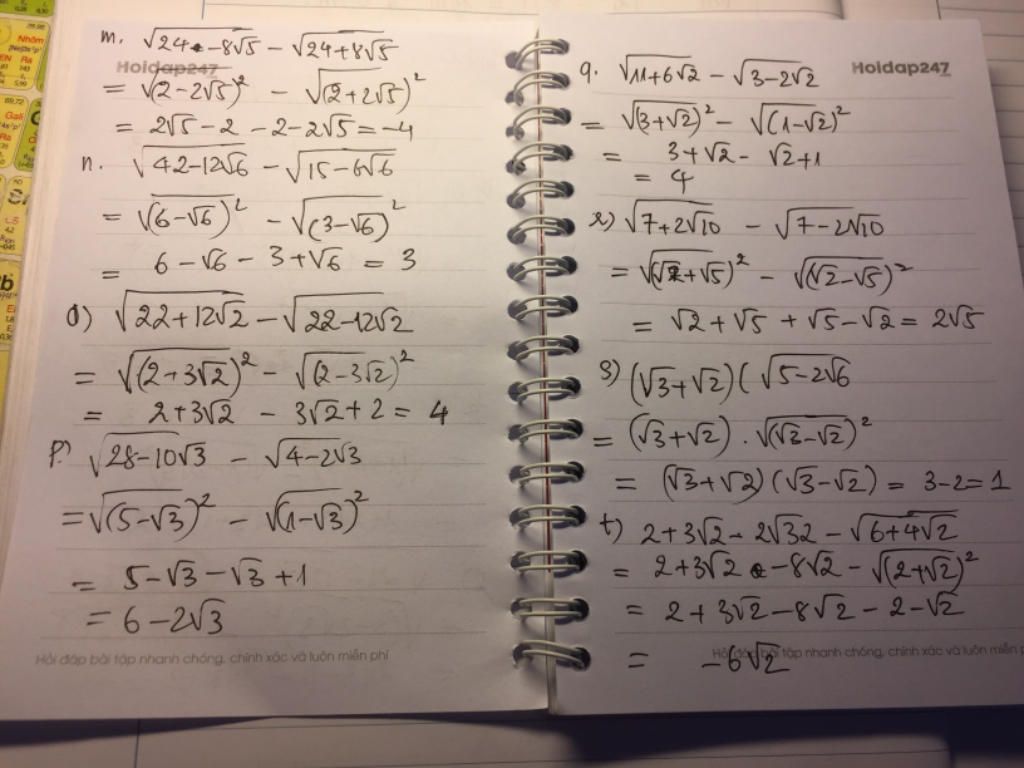 m. √(24 - 8√5) - √(24+8√5)
Hoidap247
= √(2-2√5)² - √(2+2√5)²
= 2√5-2 - 2-2√5 = -4
n. √(42-12√6) - √(15-6√6)
= √(6-√6)² - √(3-√6)²
= 6-√6 - 3+√6 = 3
o) √(22+12√2) - √(22-12√2)
= √(2+3√2)² - √(2-3√2)²
= 2+3√2 - 3√2+2 = 4
p.) √(28-10√3) - √(4-2√3)
= √(5-√3)² - √(1-√3)²
= 5-√3-√3+1
= 6-2√3
Hỏi đáp bài tập nhanh chóng, chính xác và luôn miễn phí
q. √(11+6√2) - √(3-2√2)
Hoidap247
= √(3+√2)² - √(1-√2)²
= 3+√2 - √2+1
= 4
r) √(7+2√10) - √(7-2√10)
= √(√2+√5)² - √(√2-√5)²
= √2+√5+√5-√2 = 2√5
s) (√3+√2)(√(5-2√6)
= (√3+√2).√(√3-√2)²
= (√3+√2)(√3-√2) = 3-2=1
t) 2+3√2 - 2√32 - √(6+4√2)
= 2+3√2 - 8√2 - √(2+√2)²
= 2+3√2-8√2-2-√2
= -6√2
Hỏi đáp bài tập nhanh chóng, chính xác và luôn miễn p
Nhôm
Gali